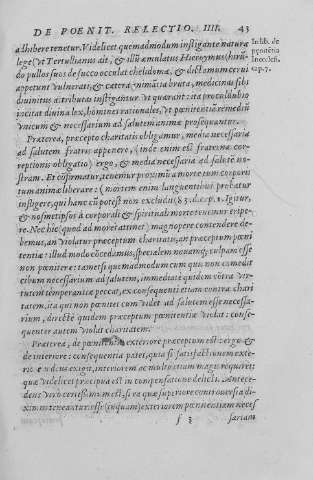 DE POENIT. RELECTIO. IIII. 43
adhibere tenetur. Videlicet quemadmodum instigante natura
lege (vt Tertullianus ait, & illũ æmulatus Hieronymus (hirũ
do pullos suos de succo occulat chelidoniæ, & dictamum cerui
appetunt vulnerati, & cætera animalia bruta, medicinas sibi
diuinitus attributa instigantur vt quærant: ita procul dubio
incitat diuina lex, homines rationales, vt pœnitentiæ remediũ
vnicum & necessarium ad salutem animæ prosequantur.
Præterea, præcepto charitatis obligamur, media necessaria
ad salutem fratris apponere, (inde enim est fraternæ cor-
reptionis obligatio) ergo, & media necessaria ad salutẽ no-
stram. Et cõfirmatur, tenemur proximũ a morte tum corporis
tum animæ liberare: (mortem enim languentibus probatur
infligere, qui hanc cũ potest non excludit, 83. d. c. 1. Igitur,
& nosmetipsos à corporali & spirituali morte tenemur eripe-
re. Nec hîc (quod ad mores attinet) magnopere contendere de-
bemus, an violatur præceptum charitatis, an præceptum pœni
tentiæ: illud modo cõcedamus, specialem nouamq; culpam esse
non pœnitere: tametsi quemadmodum cum quis non comedit
cibum necessarium ad salutem, immediatè quidem cõtra vir-
tutem temperantiæ peccat, ex consequenti etiam contra chari
tatem, ita qui non pœnitet cum videt ad salutem esse necessa-
rium, directè quidem præceptum pœnitentiæ violat: conse-
quenter autem violat charitatem.
Præterea, de pœnitentia exteriore præceptum est: ergo &
de interiore: consequentia patet, quia si satisfactionem exte-
riorem deus exigit, interiorem ac multo etiam magis requiret:
quæ videlicet præcipua est in compensatione delicti. Antece-
dens verò certissimum est, si ea quæ superiore controuersia di-
ximus teneantur: esse (inquam) exteriorem pœnitentiam neces
f 3 sariam
In lib. de
pœnitẽtia
Innocẽt.
cap. 7.